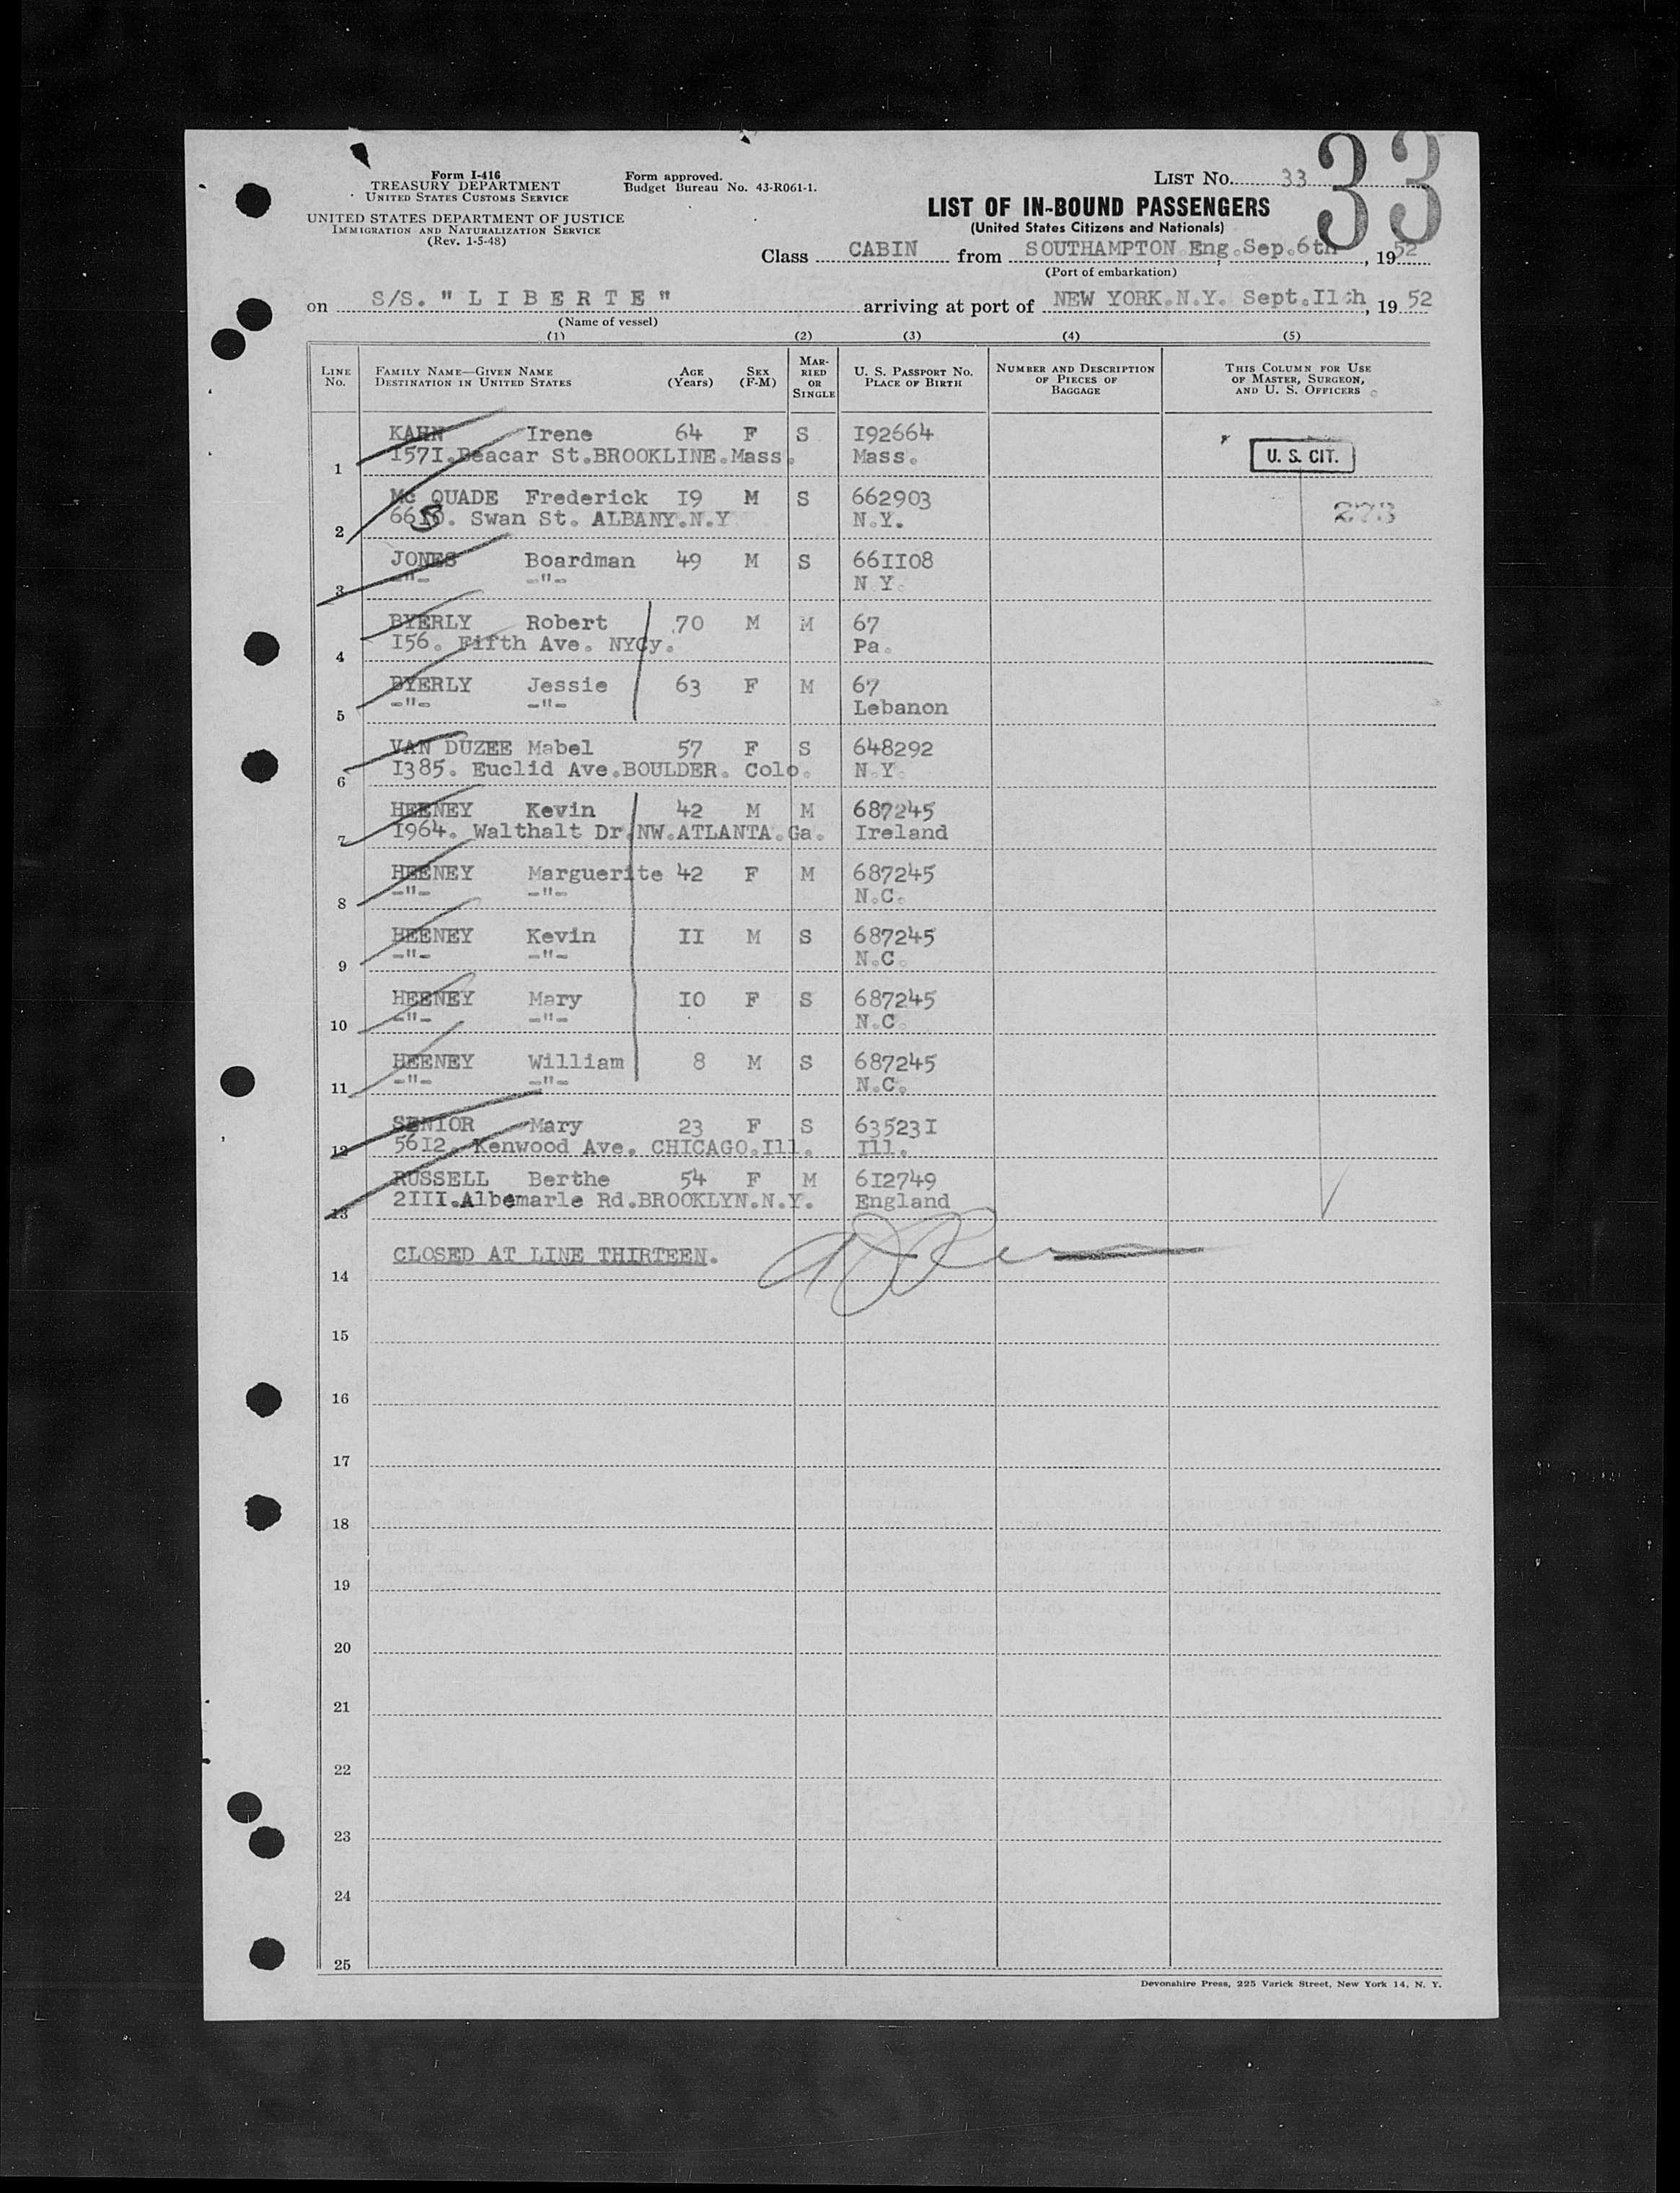 33
Form I-416
TREASURY DEPARTMENT
UNITED STATES CUSTOMS SERVICE
UNITED STATES DEPARTMENT OF JUSTICE
IMMIGRATION AND NATURALIZATION SERVICE
(Rev. 1-5-48)
Form approved.
Budget Bureau No. 43-R061-1.
LIST No. 33
LIST OF IN-BOUND PASSENGERS
(United States Citizens and Nationals)
Class CABIN from SOUTHAMPTON Eng. Sep.6th, 1952
(Port of embarkation)
on S/S. "LIBERTE" arriving at port of NEW YORK.N.Y. Sept.IIth, 1952
(Name of vessel)
(1) (2) (3) (4) (5)
LINE No. FAMILY NAME—GIVEN NAME DESTINATION IN UNITED STATES AGE (Years) SEX (F-M) MARRIED OR SINGLE U. S. PASSPORT No. PLACE OF BIRTH NUMBER AND DESCRIPTION OF PIECES OF BAGGAGE THIS COLUMN FOR USE OF MASTER, SURGEON, AND U. S. OFFICERS
KAHN Irene 64 F S I92664
1 I57I.Beacar St.BROOKLINE.Mass. Mass. U. S. CIT.
Mc QUADE Frederick I9 M S 662903
2 Swan St. ALBANY.N.Y N.Y. 273
JONES Boardman 49 M S 66II08
3 -"- -"- N.Y.
BYERLY Robert 70 M M 67
4 I56. Fifth Ave. NYCy. Pa.
BYERLY Jessie 63 F M 67
5 -"- -"- Lebanon
VAN DUZEE Mabel 57 F S 648292
6 I385. Euclid Ave.BOULDER. Colo. N.Y.
HEENEY Kevin 42 M M 687245
7 I964. Walthalt Dr.NW.ATLANTA.Ga. Ireland
HEENEY Marguerite 42 F M 687245
8 -"- -"- N.C.
HEENEY Kevin II M S 687245
9 -"- -"- N.C.
HEENEY Mary IO F S 687245
10 -"- -"- N.C.
HEENEY William 8 M S 687245
11 -"- -"- N.C.
SENIOR Mary 23 F S 63523I
12 56I2. Kenwood Ave. CHICAGO.Ill. Ill.
RUSSELL Berthe 54 F M 6I2749
13 2III.Albemarle Rd.BROOKLYN.N.Y. England
CLOSED AT LINE THIRTEEN.
14
15
16
17
18
19
20
21
22
23
24
25
Devonshire Press, 225 Varick Street, New York 14, N. Y.